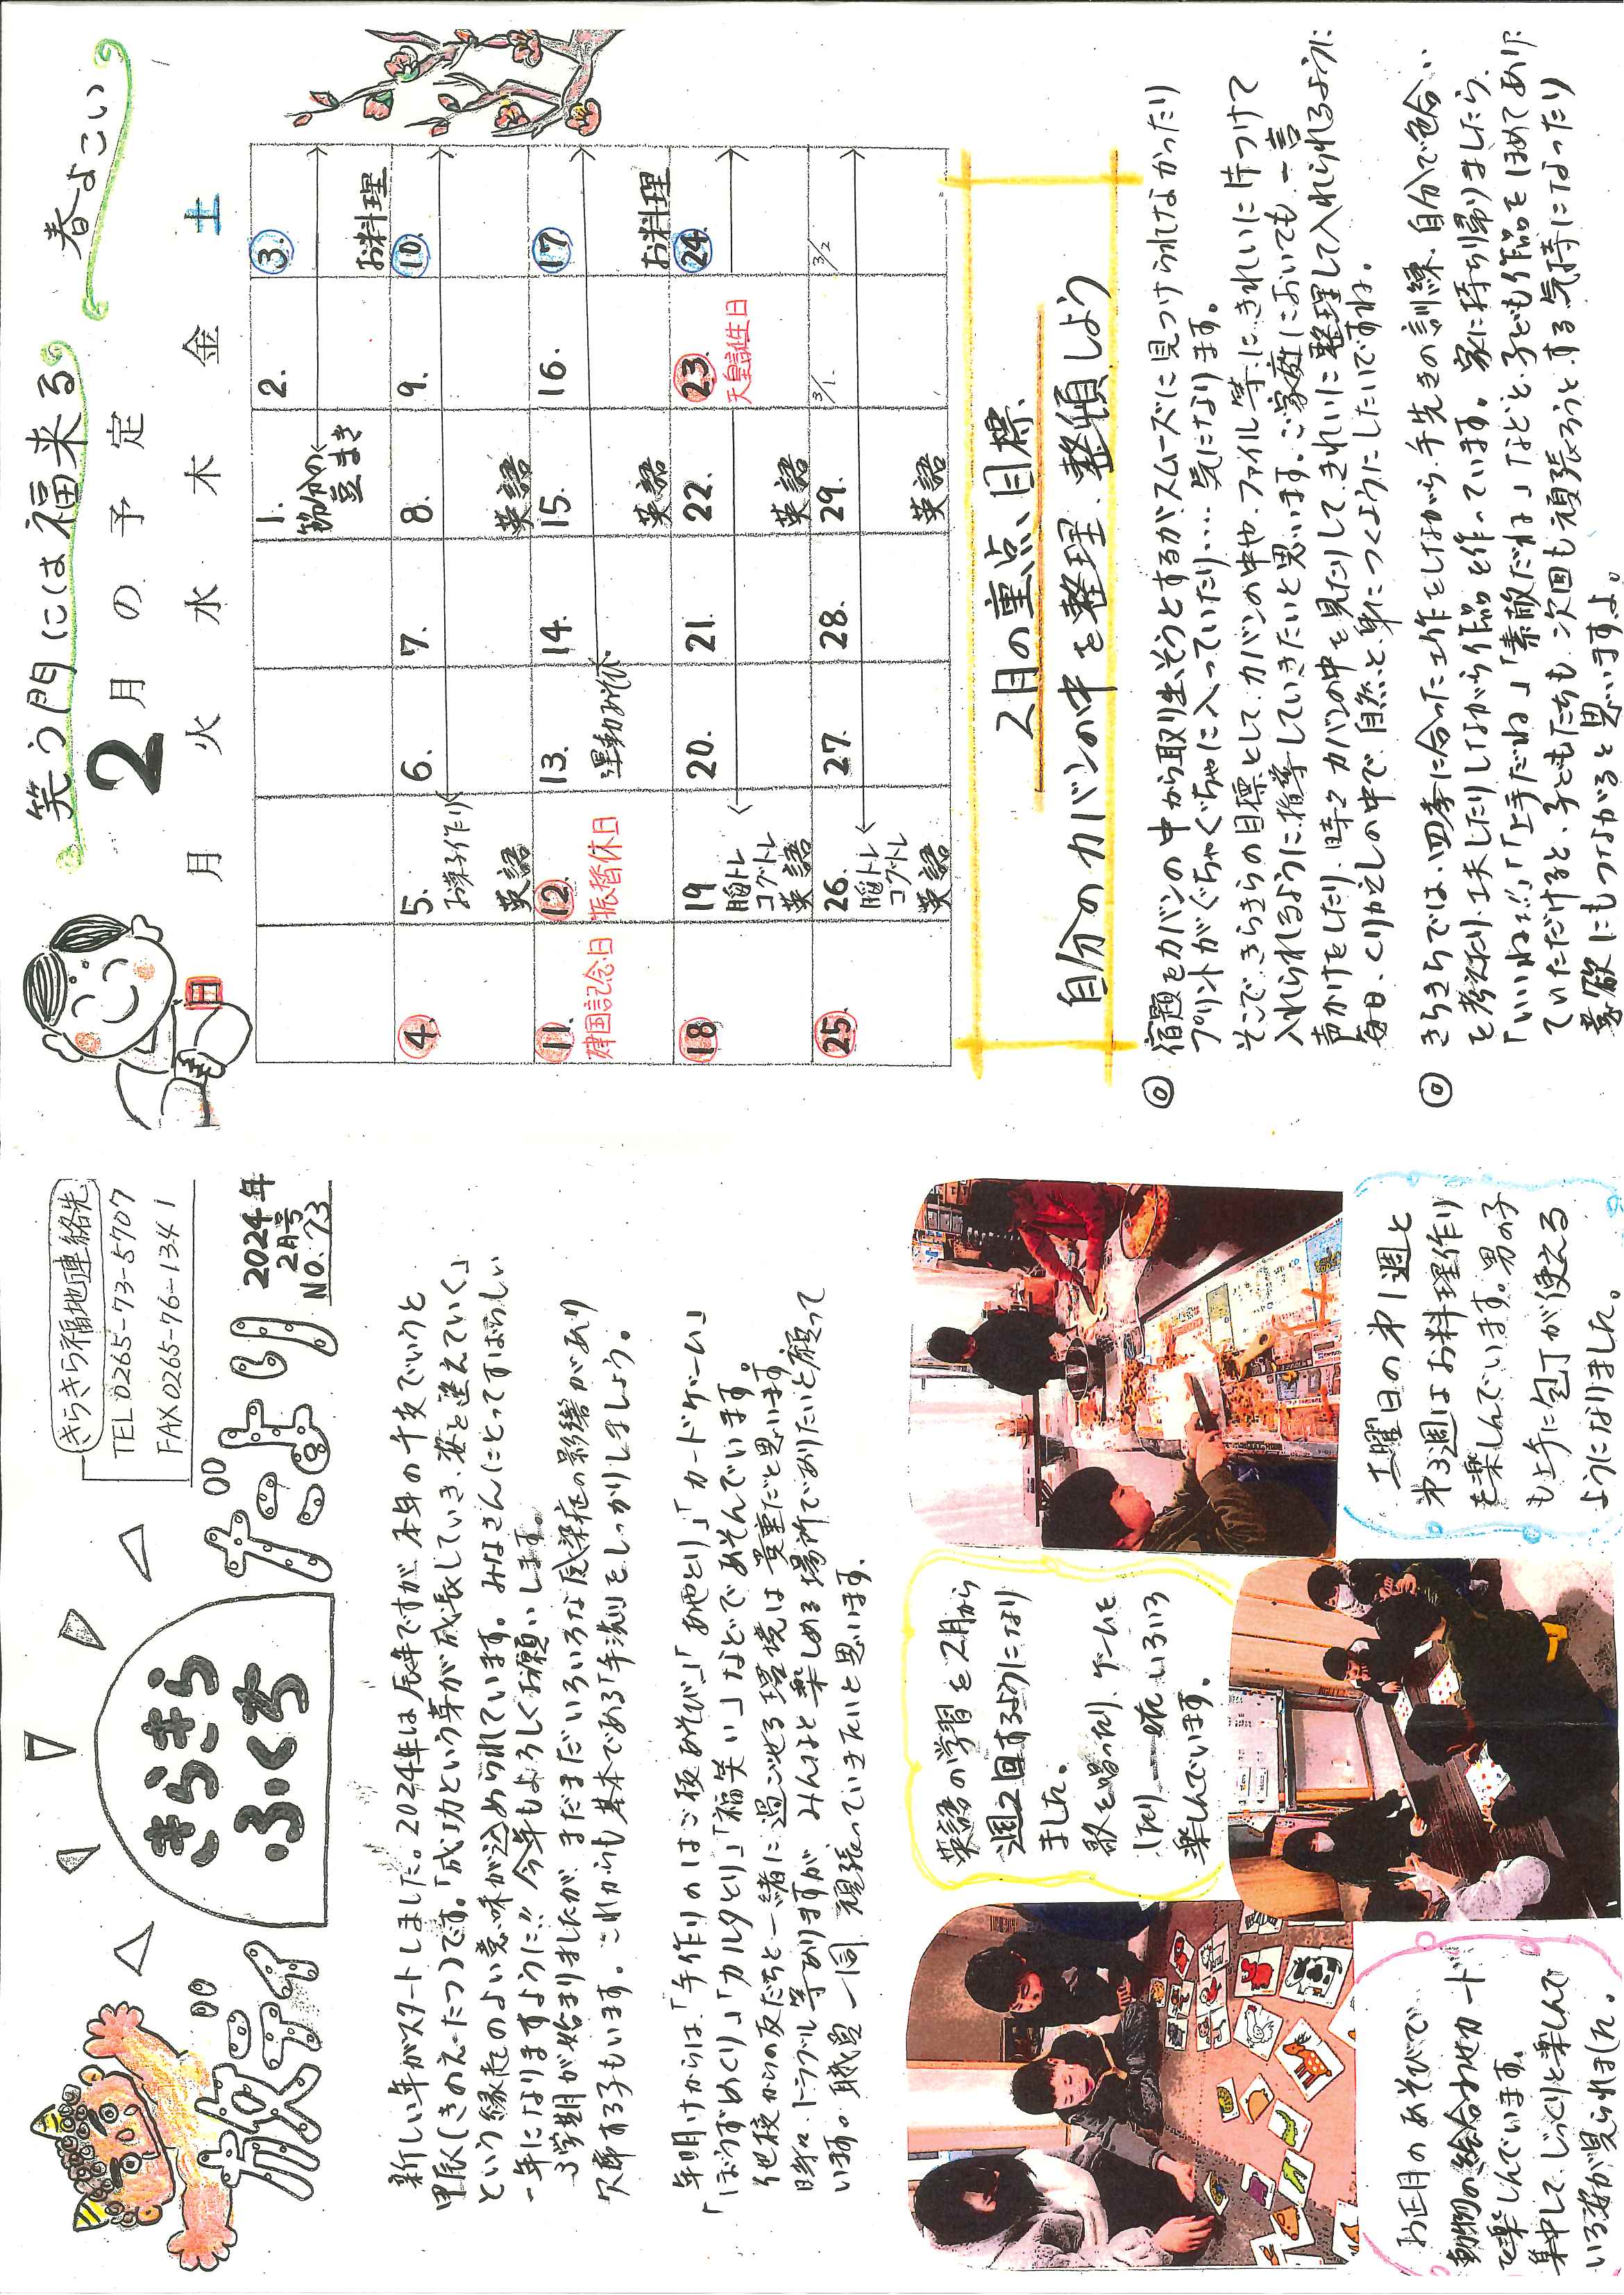 きらきら福地連絡先
TEL 0265-73-5707
FAX 0265-76-1341
きらきら
ふくち
放デイ
だより
2024年
2月号
NO.73
新しい年がスタートしました。2024年は辰年ですが、本年の干支でいうと
甲辰(きのえ・たつ)です。「成功という芽が成長していき、姿を整えていく」
という縁起のよい意味が込められています。みなさんにとってすばらしい
一年になりますように!! 今年もよろしくお願いします。
3学期が始まりましたが、まだまだいろいろな感染症の影響があり
欠席する子もいます。これからも基本である「手洗い」をしっかりしましょう。
年明けからは、「手作りのはご板あそび」「あやとり」「カードゲーム」
「ぼうずめくり」「カルタとり」「福笑い」などであそんでいます。
他校からの友だちと一緒に過ごせる環境は貴重だと思います。
時々、トラブル等ありますが、みんなと楽しめる場所でありたいと願って
います。職員一同 頑張っていきたいと思います。
お正月のあそびで
動物の絵合わせカード
で楽しんでいます。
集中して、じっくりと楽しんで
いる姿が見られました。
英語の学習を2月から
週2回するようになり
ました。
歌を唱ったり、ゲームを
したり…色んないろいろ
楽しんでいます。
土曜日の第1週と
第3週はお料理作り
を楽しんでいます。男の子
も上手に包丁が使える
ようになりました。
笑う門には福来る 春よこい
2月の予定
日 月 火 水 木 金 土
1. 2. 3.
節分の
豆まき
お料理
4. 5. 6. 7. 8. 9. 10.
お菓子作り
英語 英語
11. 12. 13. 14. 15. 16. 17.
建国記念日 振替休日 運動あそび
英語 お料理
18 19 20. 21. 22. 23. 24.
脳トレ 天皇誕生日
コグトレ
英語 英語
25. 26. 27. 28. 29. 3/1. 3/2
脳トレ
コグトレ
英語 英語
2月の重点目標
自分のカバンの中を整理・整頓しよう
◎ 宿題をカバンの中から取り出そうとするがスムーズに見つけられなかったり
プリントがぐちゃぐちゃに入っていたり…気になります。
そこで、きらきらの目標として、カバンの中や、ファイル等に、きれいに片づけて
入れられるように指導していきたいと思います。ご家庭においても、一言
声かけをしたり、時々カバンの中を見たりして、きれいに整理して入れられるように
毎日、くり返しの中で、自然と身につくようにしたいですね。
◎ きらきらでは、四季に合った工作をしながら、手先きの訓練、自分で色合い
を考えたり、工夫したりしながら作品を作っています。家に持ち帰りましたら、
「いいねぇ」「上手だね」「素敵だね」などと、子ども作品をほめてあげ
ていただけると、子どもたちも、次回も頑張ろうとする気持になったり
意欲にもつながると思いますよ。